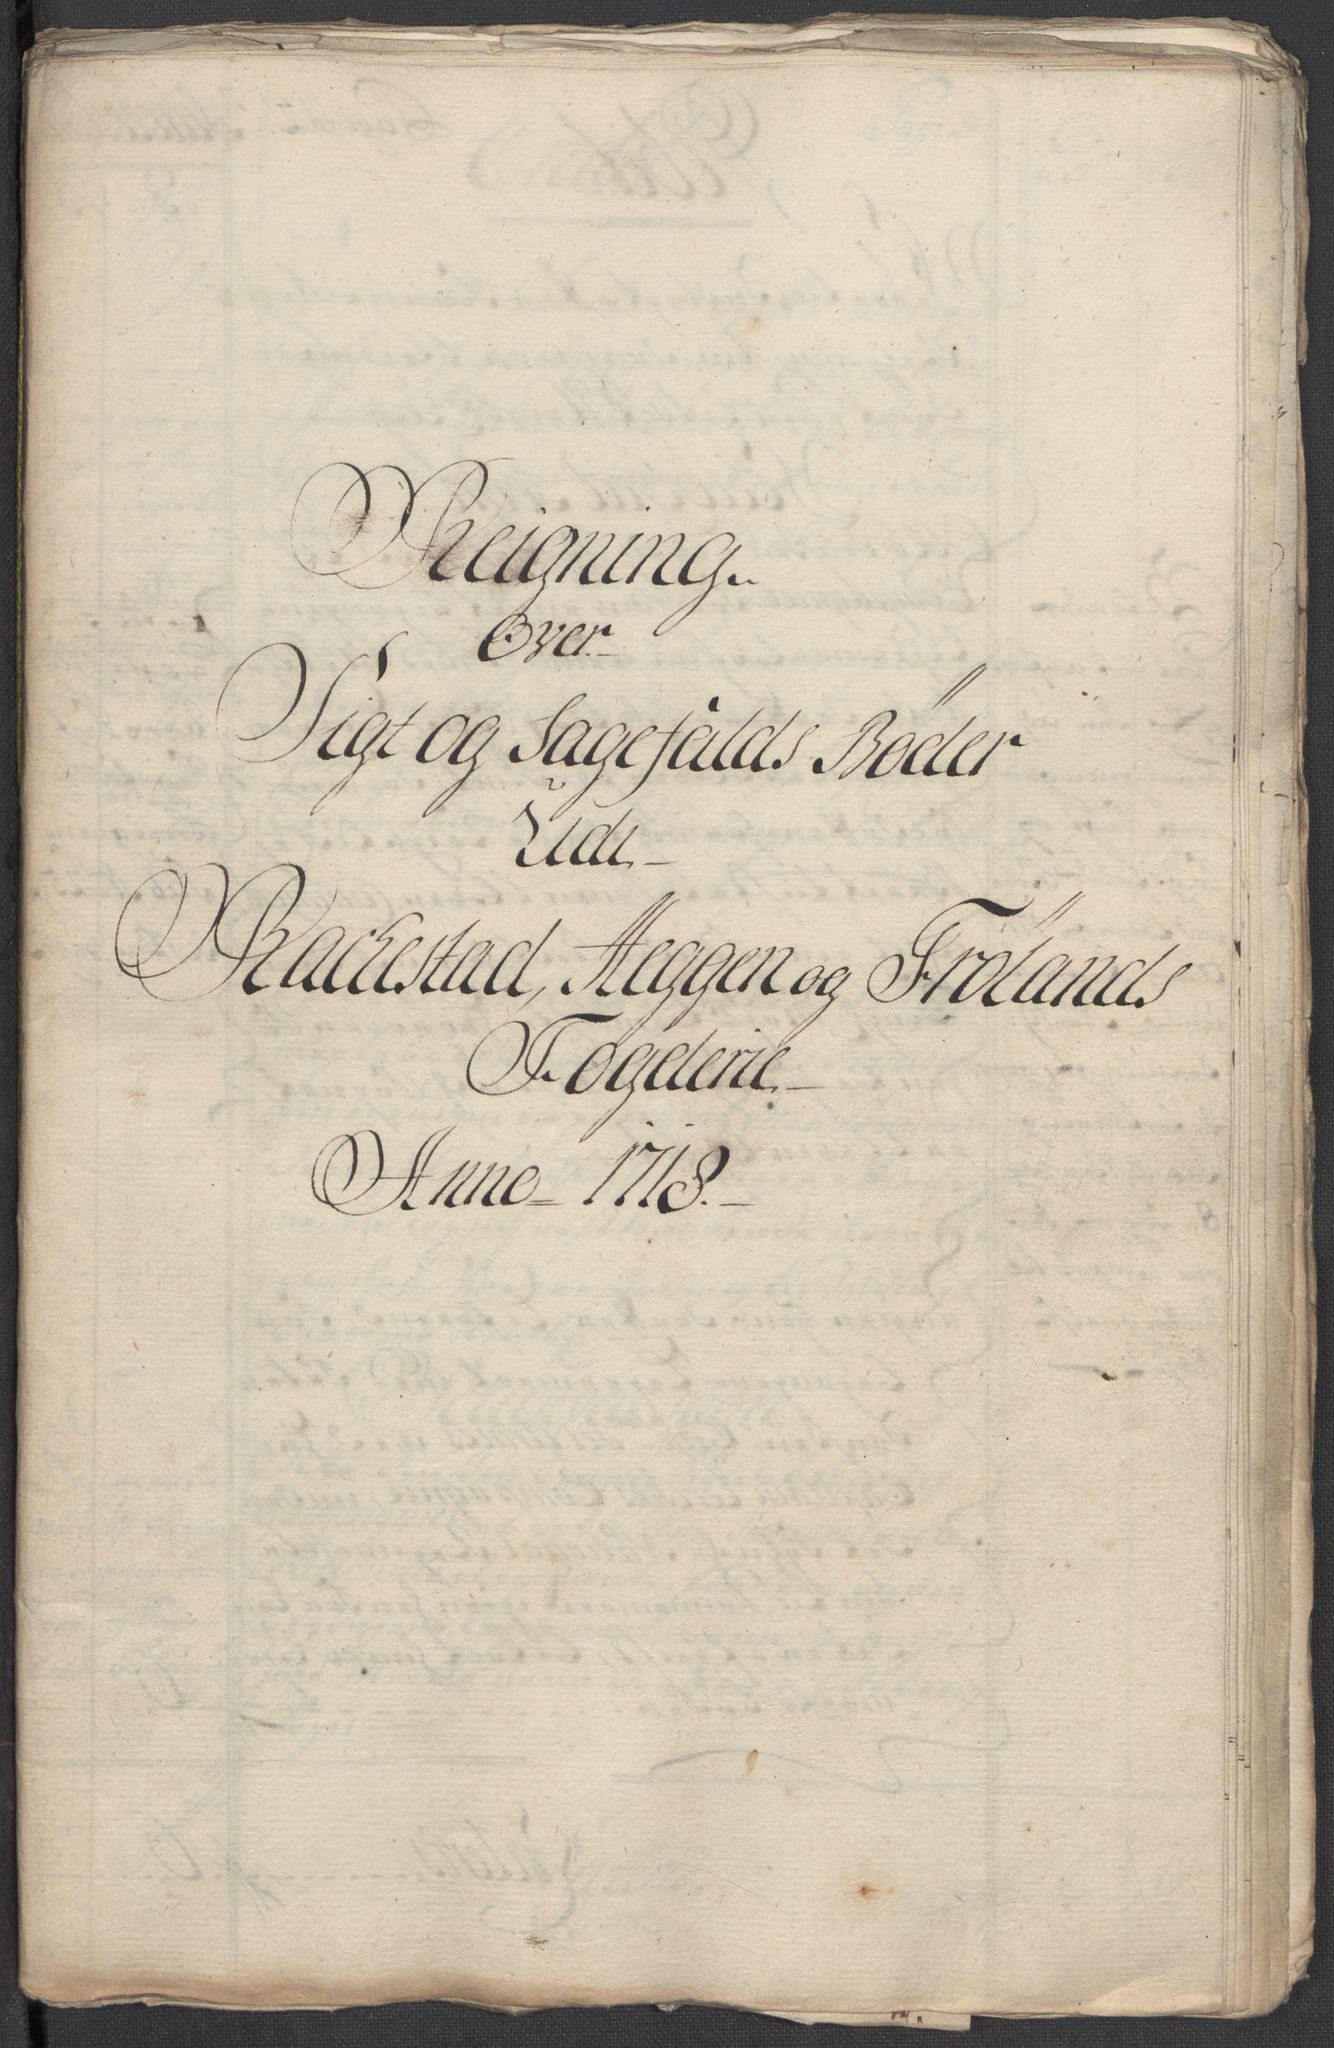 Reigning
Over
Sigt og Sagefalds Böder
Udi
Rackestad, Heggen og Frölands
Fogderie
Anno 1718.